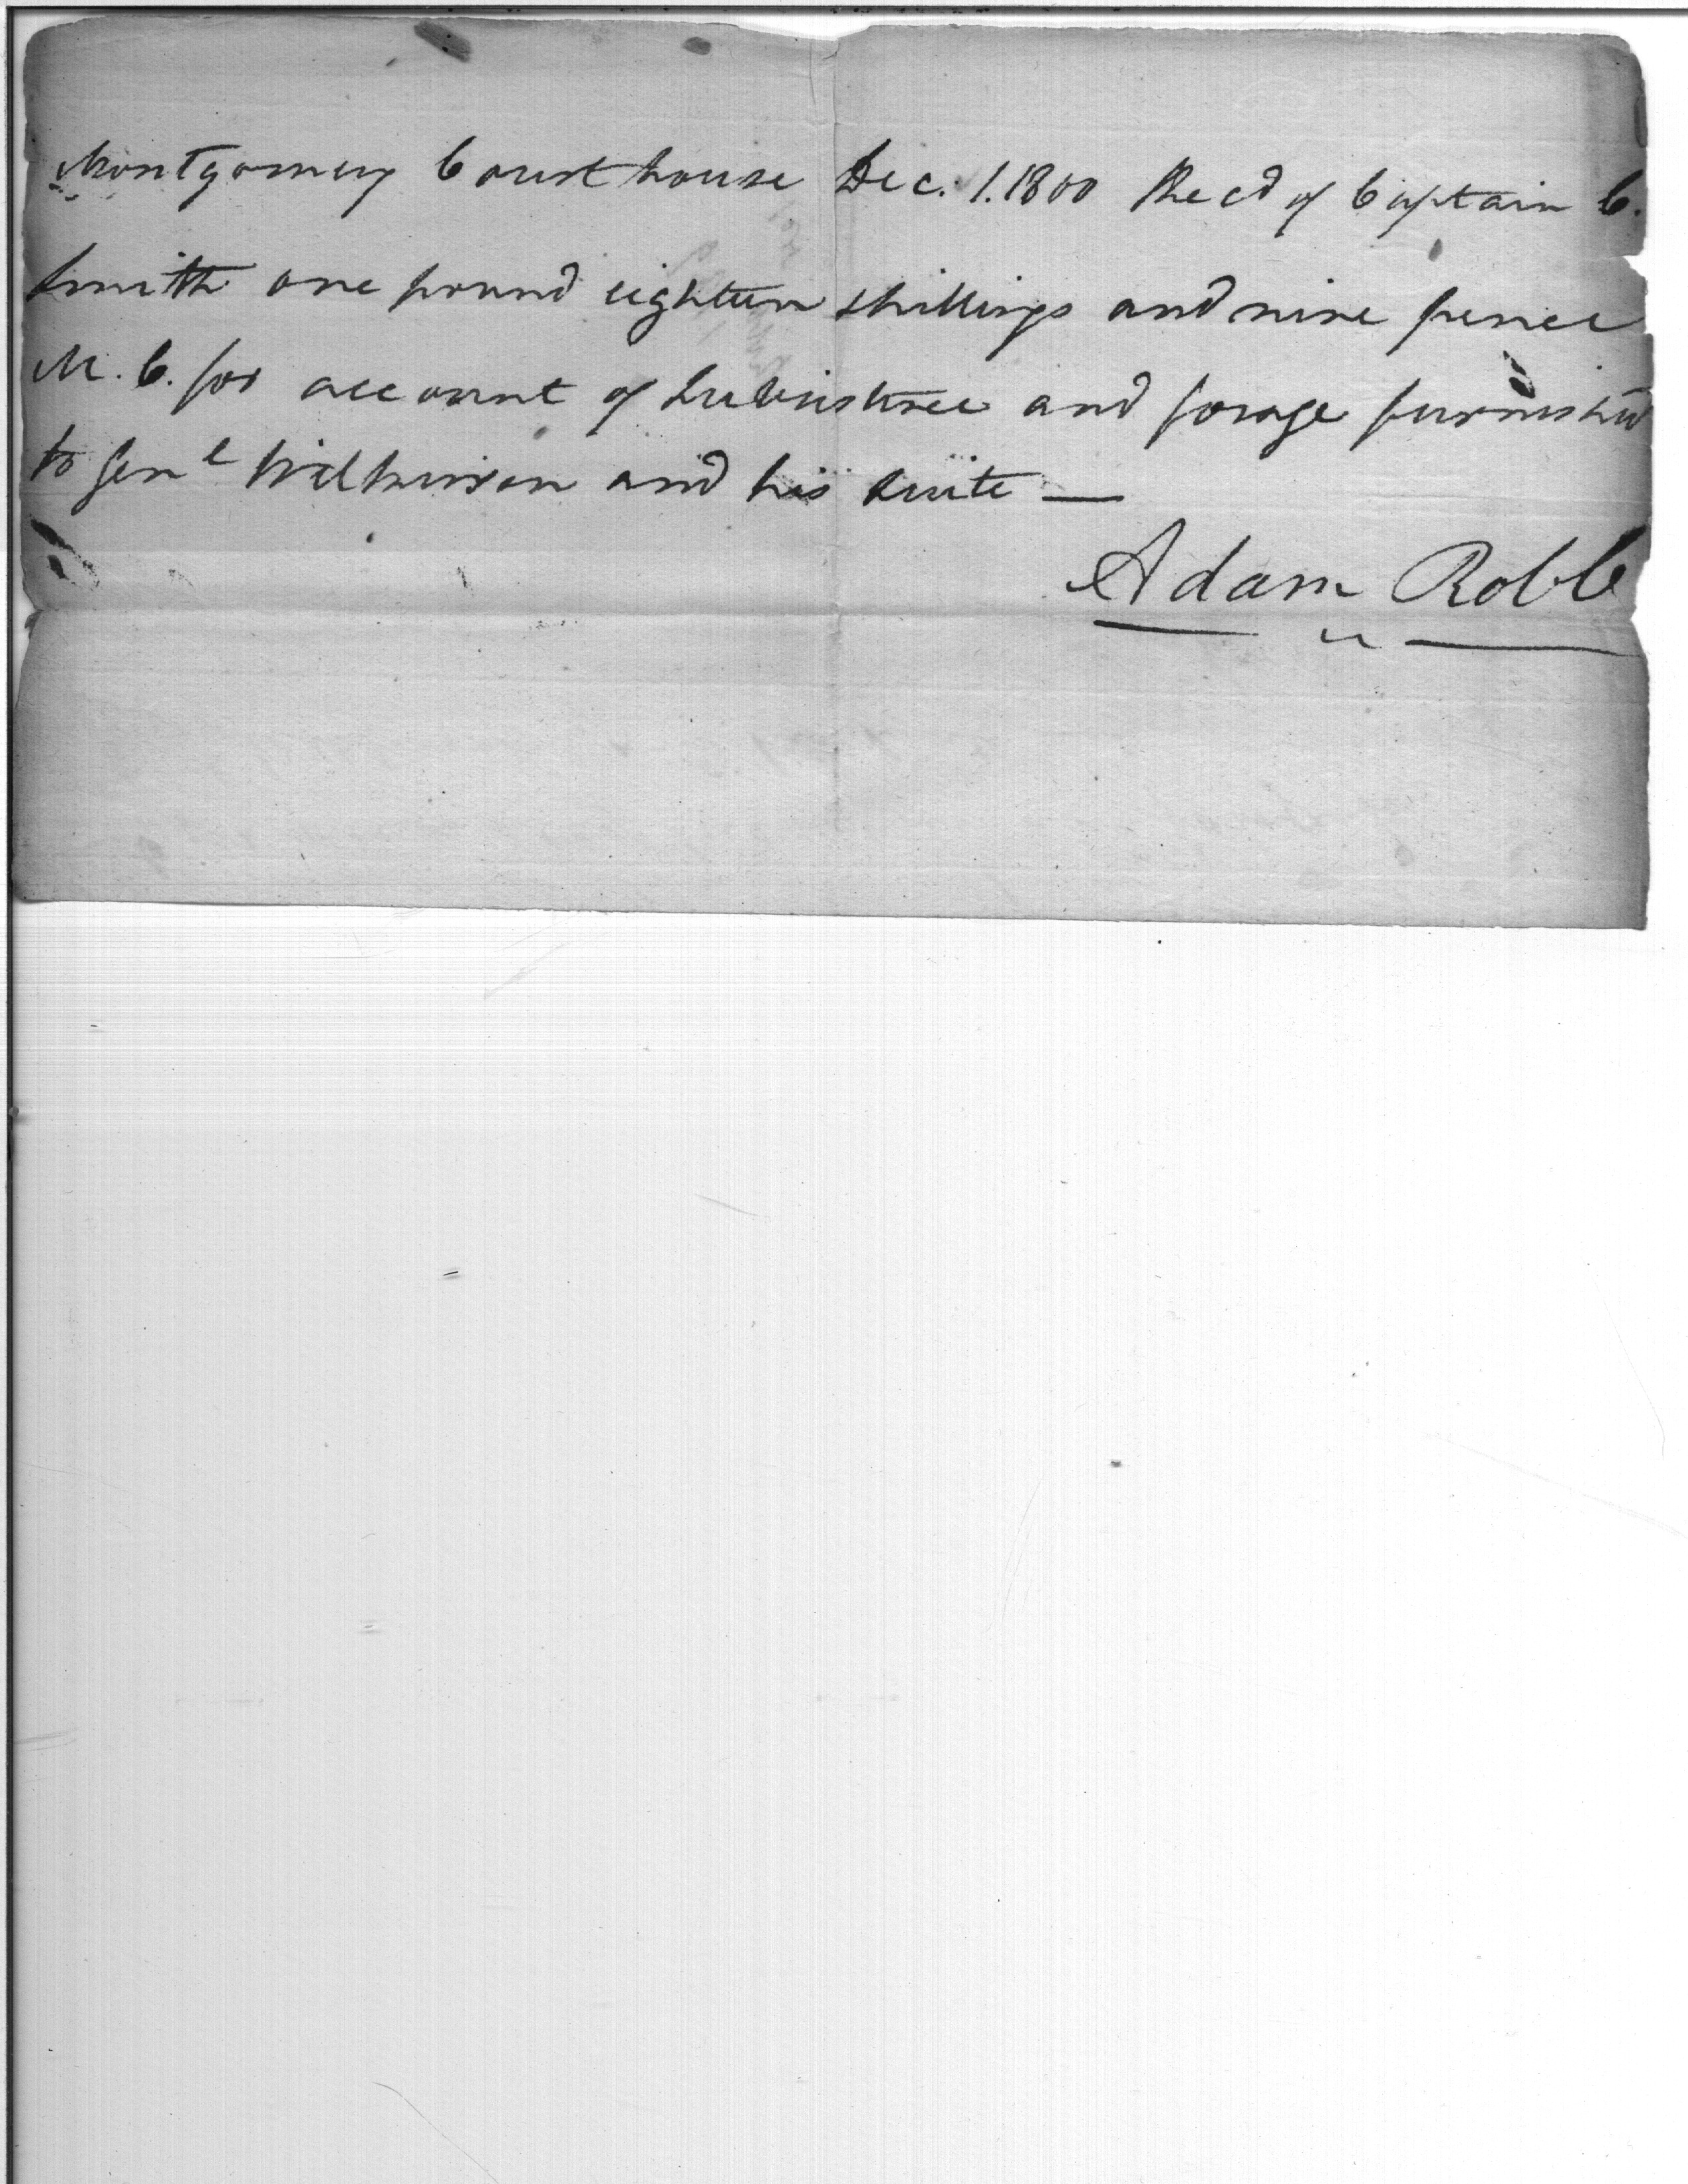 Montgomery Court house Dec. 1. 1800 Recd of Captain C.
Smith one pound eighteen shillings and nine pence
M. C. for account of and forage furnished
to Genl Wilkinson and his suite —
Adam Robb